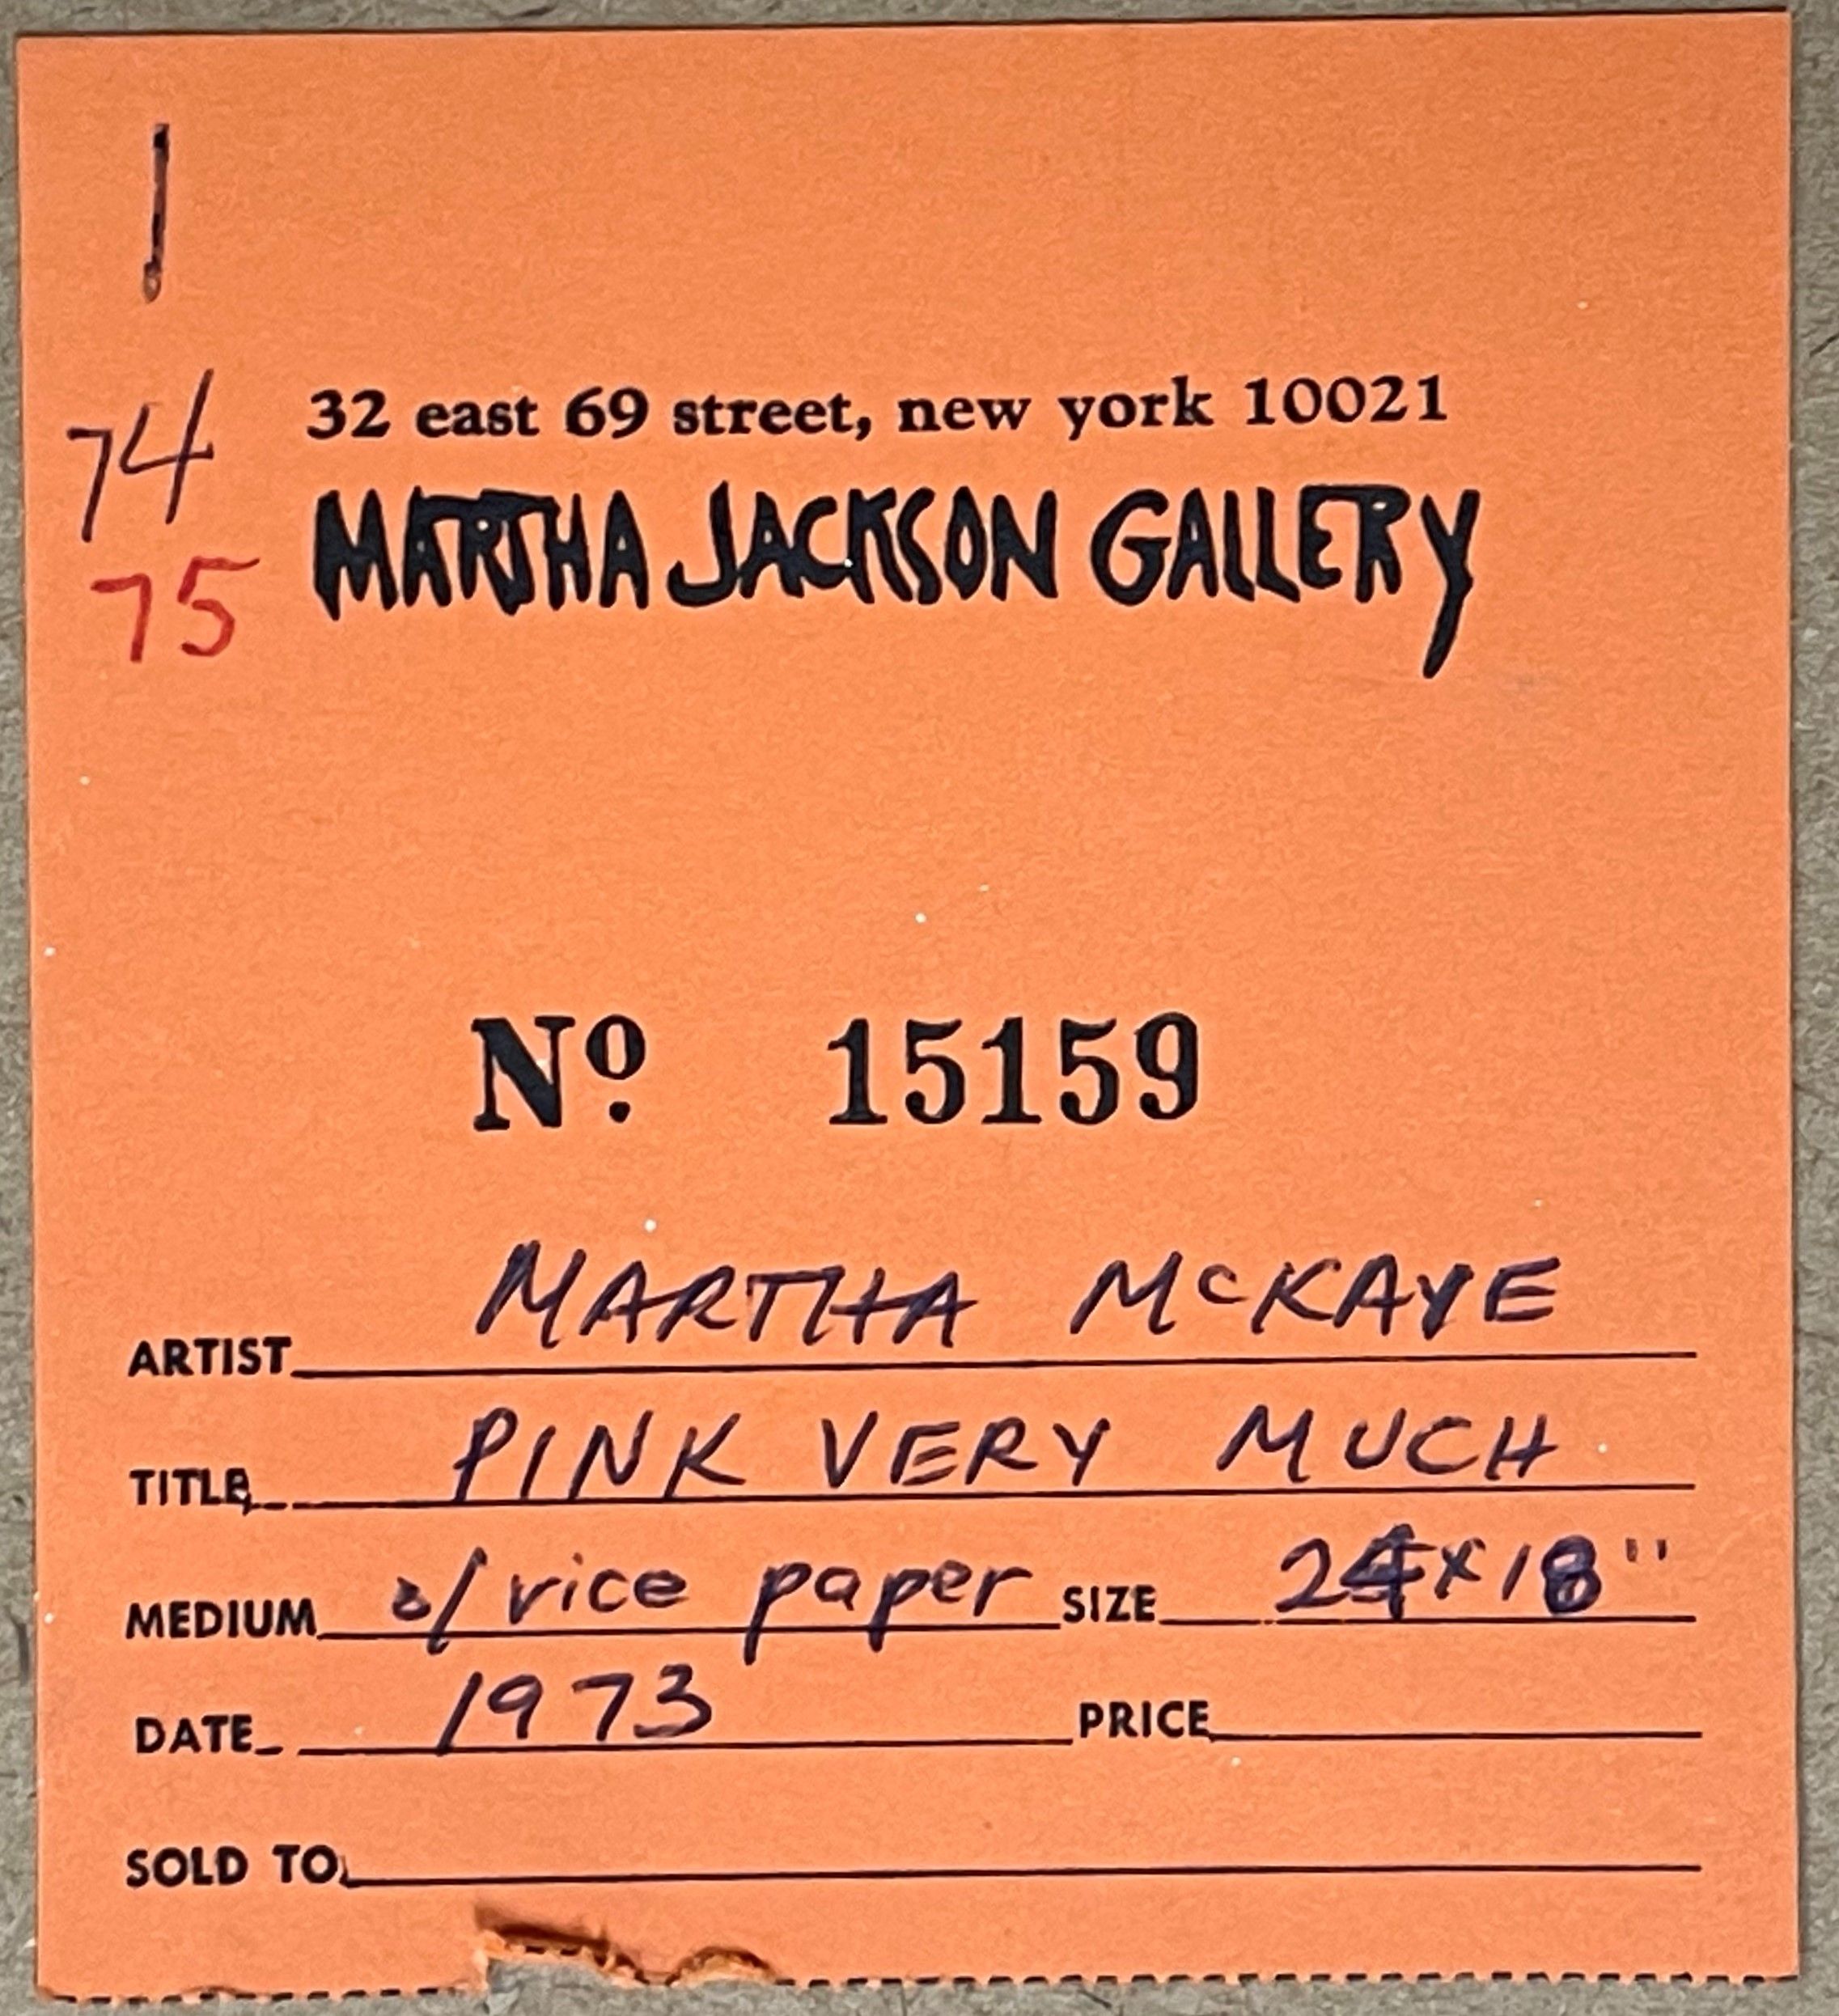 1
74
32 east 69 street, new york 10021
MARTHA JACKSON GALLERY
75
Nº 15159
ARTIST MARTHA McKAYE
TITLE PINK VERY MUCH
MEDIUM o/ rice paper SIZE 24 x 18"
DATE 1973 PRICE
SOLD TO